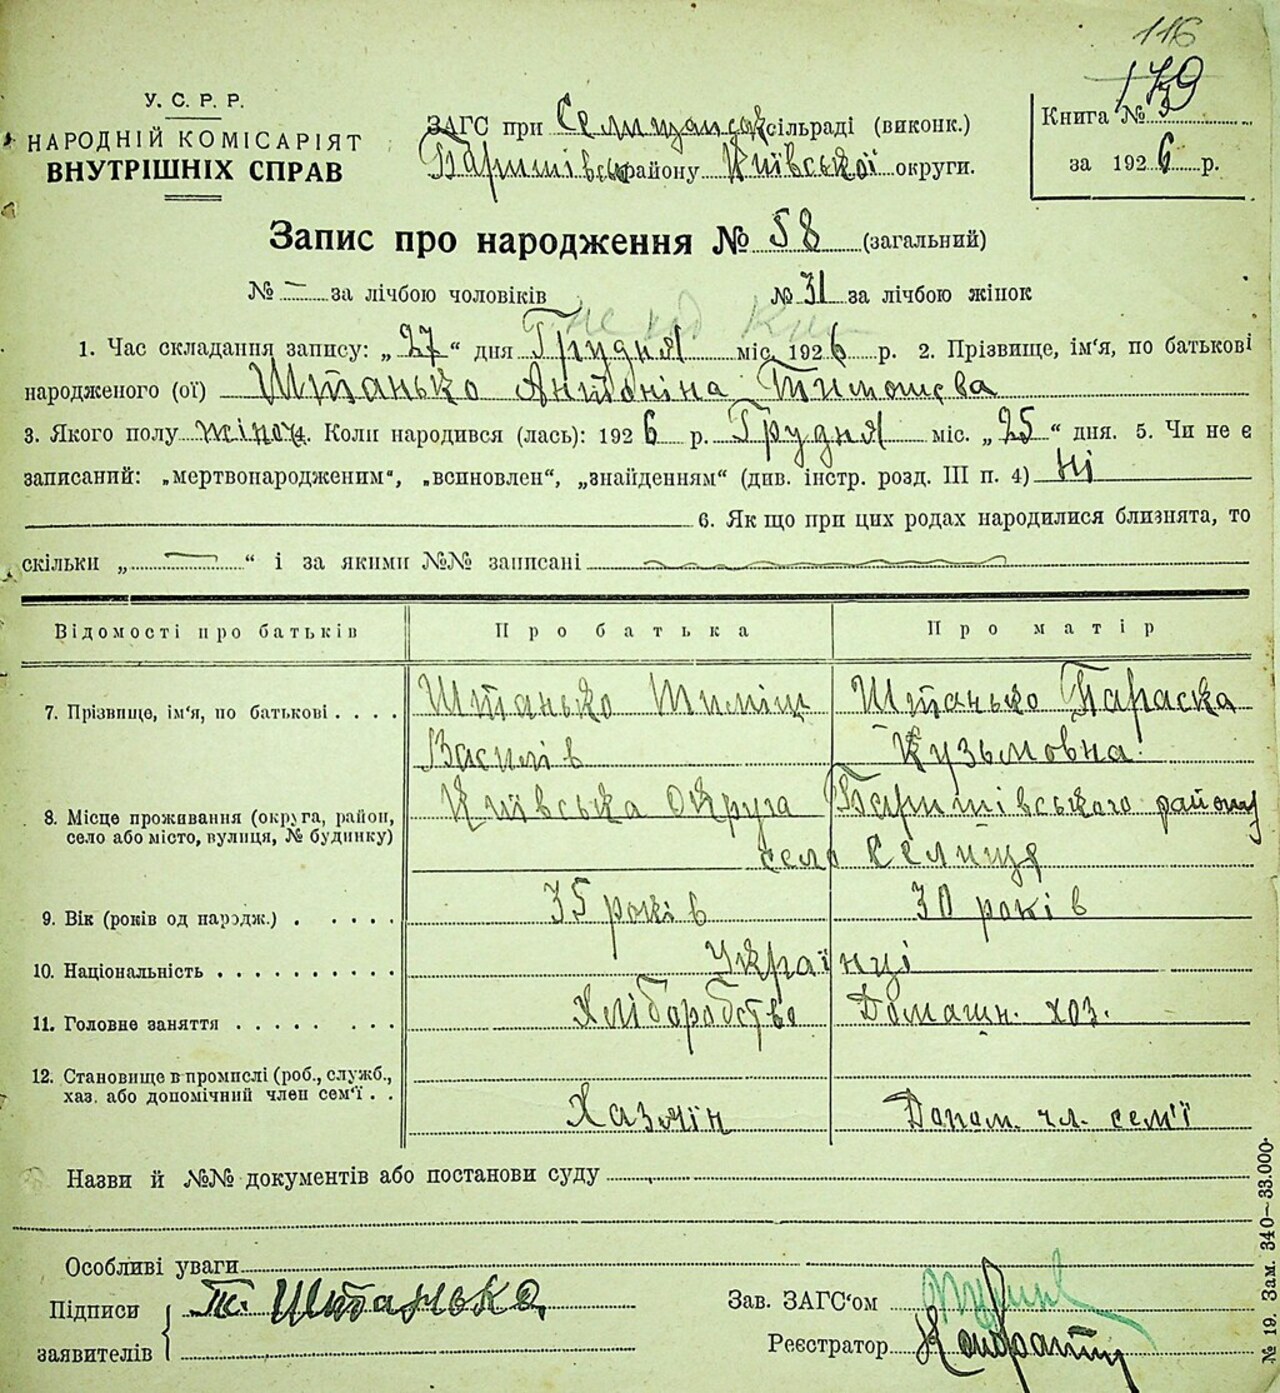 116
179
У. С. Р. Р.
НАРОДНІЙ КОМІСАРІЯТ
ВНУТРІШНІХ СПРАВ
ЗАГС при Селищанськ сільраді (виконк.)
Баришівськ району Київської округи.
Книга № 3
за 1926 р.
Запис про народження № 58 (загальний)
№ — за лічбою чоловіків № 31 за лічбою жінок
1. Час складання запису: „27“ дня Грудня міс. 1926 р. 2. Прізвище, ім'я, по батькові
народженого (ої) Штанько Антоніна Тимошева
3. Якого полу жіноч. Коли народився (лась): 1926 р. Грудня міс. „25“ дня. 5. Чи не є
записаний: „мертвонародженим“, „всиновлен“, „знайденням“ (див. інстр. розд. III п. 4) Ні
6. Як що при цих родах народилися близнята, то
скільки „ — “ і за якими №№ записані
Відомості про батьків Про батька Про матір
7. Прізвище, ім'я, по батькові . . . . Штанько Тиміш Штанько Параска
Василів Кузьмовна.
8. Місце проживання (округа, район, Київська Округа Баришівського району
село або місто, вулиця, № будинку) село Селище
9. Вік (років од народж.) . . . . . 35 років 30 років
10. Національність . . . . . . . . . . Українці
11. Головне заняття . . . . . . . . Хліборобство Домашн. хоз.
12. Становище в промислі (роб., служб.,
хаз. або допомічний член сем'ї . . Хазяїн Допом. чл. сем'ї
Назви й №№ документів або постанови суду
Особливі уваги
Підписи Т. Штанько
заявителів
Зав. ЗАГС'ом
Реєстратор
№ 19. Зам. 340—33.000.